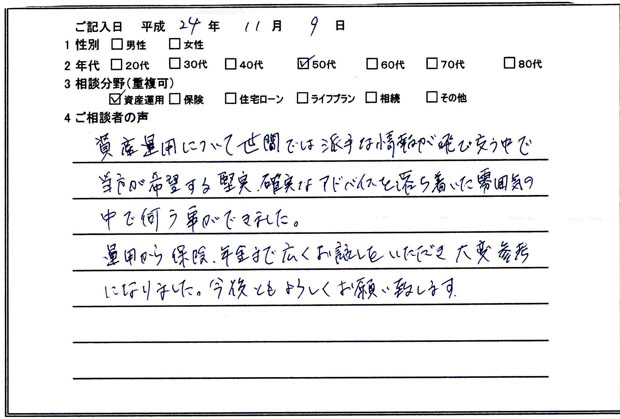 ご記入日 平成 24 年 11 月 9 日
1 性別 □男性 □女性
2 年代 □20代 □30代 □40代 ☑50代 □60代 □70代 □80代
3 相談分野(重複可)
☑資産運用 □保険 □住宅ローン □ライフプラン □相続 □その他
4 ご相談者の声
資産運用について世間では派手な情報が飛び交う中で
当方が希望する堅実、確実なアドバイスを落ち着いた雰囲気の
中で伺う事ができました。
運用から保険、年金まで広くお話しをいただき大変参考
になりました。今後ともよろしくお願い致します。